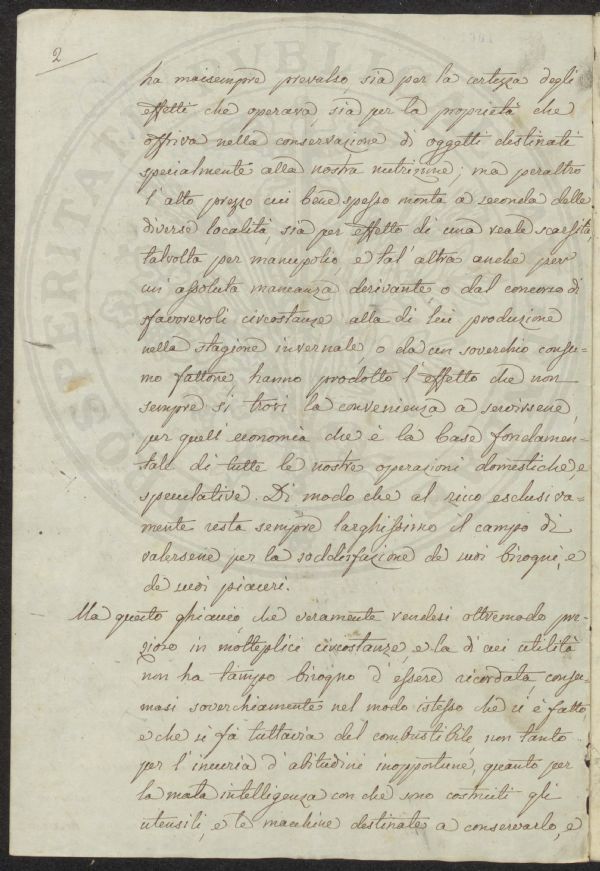 2
ha maisempre prevalso, sia per la certezza degli
effetti che operava, sia per la proprietà che
offriva nella conservazione di oggetti destinati
specialmente alla nostra nutrizione; ma peraltro
l'alto prezzo cui bene spesso monta a seconda delle
diverse località, sia per effetto di una reale scarsità,
talvolta per manupolio, e tal'altra anche per
un'assoluta mancanza derivante o dal concorso di
sfavorevoli circostanze alla di lui produzione
nella stagione invernale o da un soverchio consu-
mo fattone, hanno prodotto l'effetto che non
sempre si trovi la convenienza a servirsene,
per quell'economia che è la base fondamen-
tale di tutte le nostre operazioni domestiche, e
speculative. Di modo che al ricco esclusiva-
mente resta sempre larghissimo il campo di
valersene per la soddisfazione de suoi bisogni, e
de suoi piaceri.
Ma questo ghiaccio, che veramente rendesi oltremodo pre-
zioso in molteplici circostanze, e la di cui utilità
non ha tampoco bisogno d'essere ricordata, consu-
masi soverchiamente nel modo istesso che si è fatto,
e che si fà tuttavia del combustibile, non tanto
per l'incuria d'abitudini inopportune, quanto per
la mala intelligenza con che sono costruiti gli
utensili, e le macchine destinate a conservarlo, e